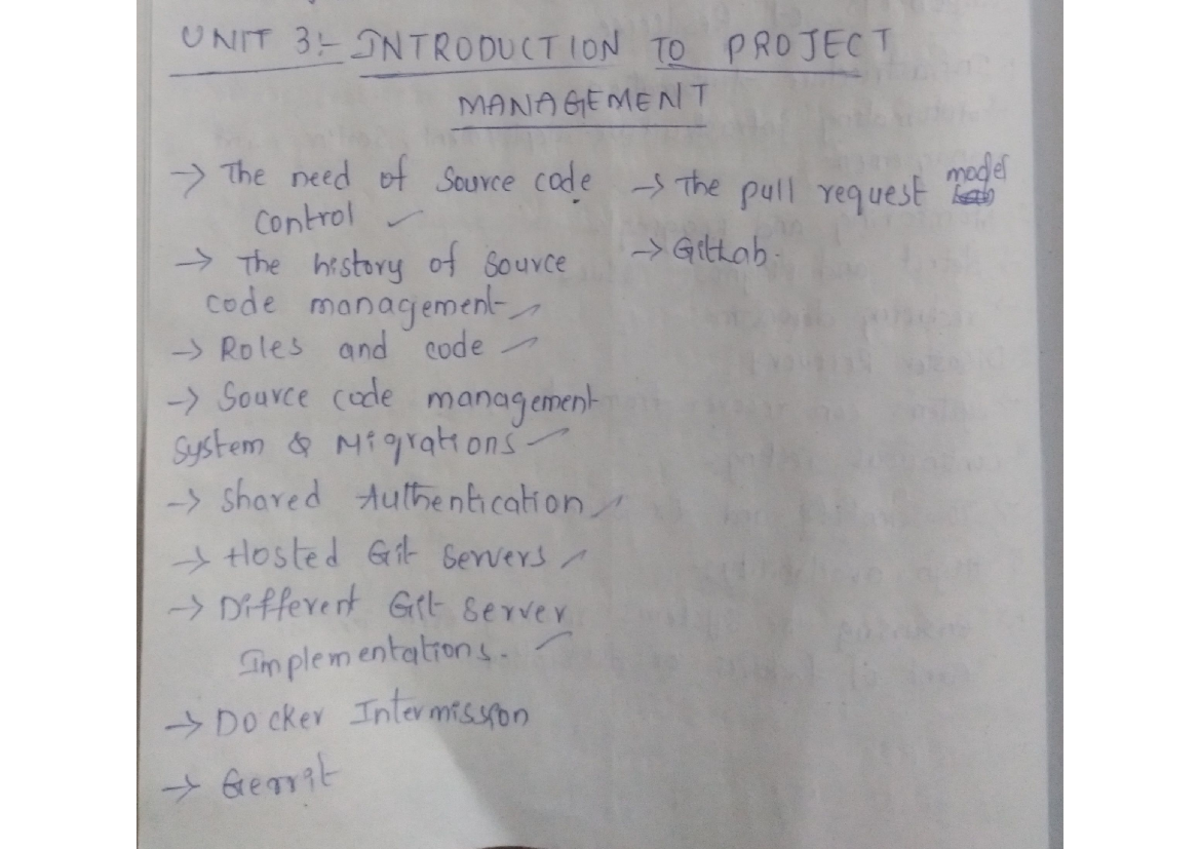 UNIT 3:- INTRODUCTION TO PROJECT
MANAGEMENT
→ The need of Source code
control ✓
→ The history of Source
code management ✓
→ Roles and code ✓
→ Source code management
System & Migrations ✓
→ Shared Authentication ✓
→ Hosted Git Servers ✓
→ Different Git Server
Implementations. ✓
→ Docker Intermission
→ Gerrit
→ The pull request model
→ GitLab.